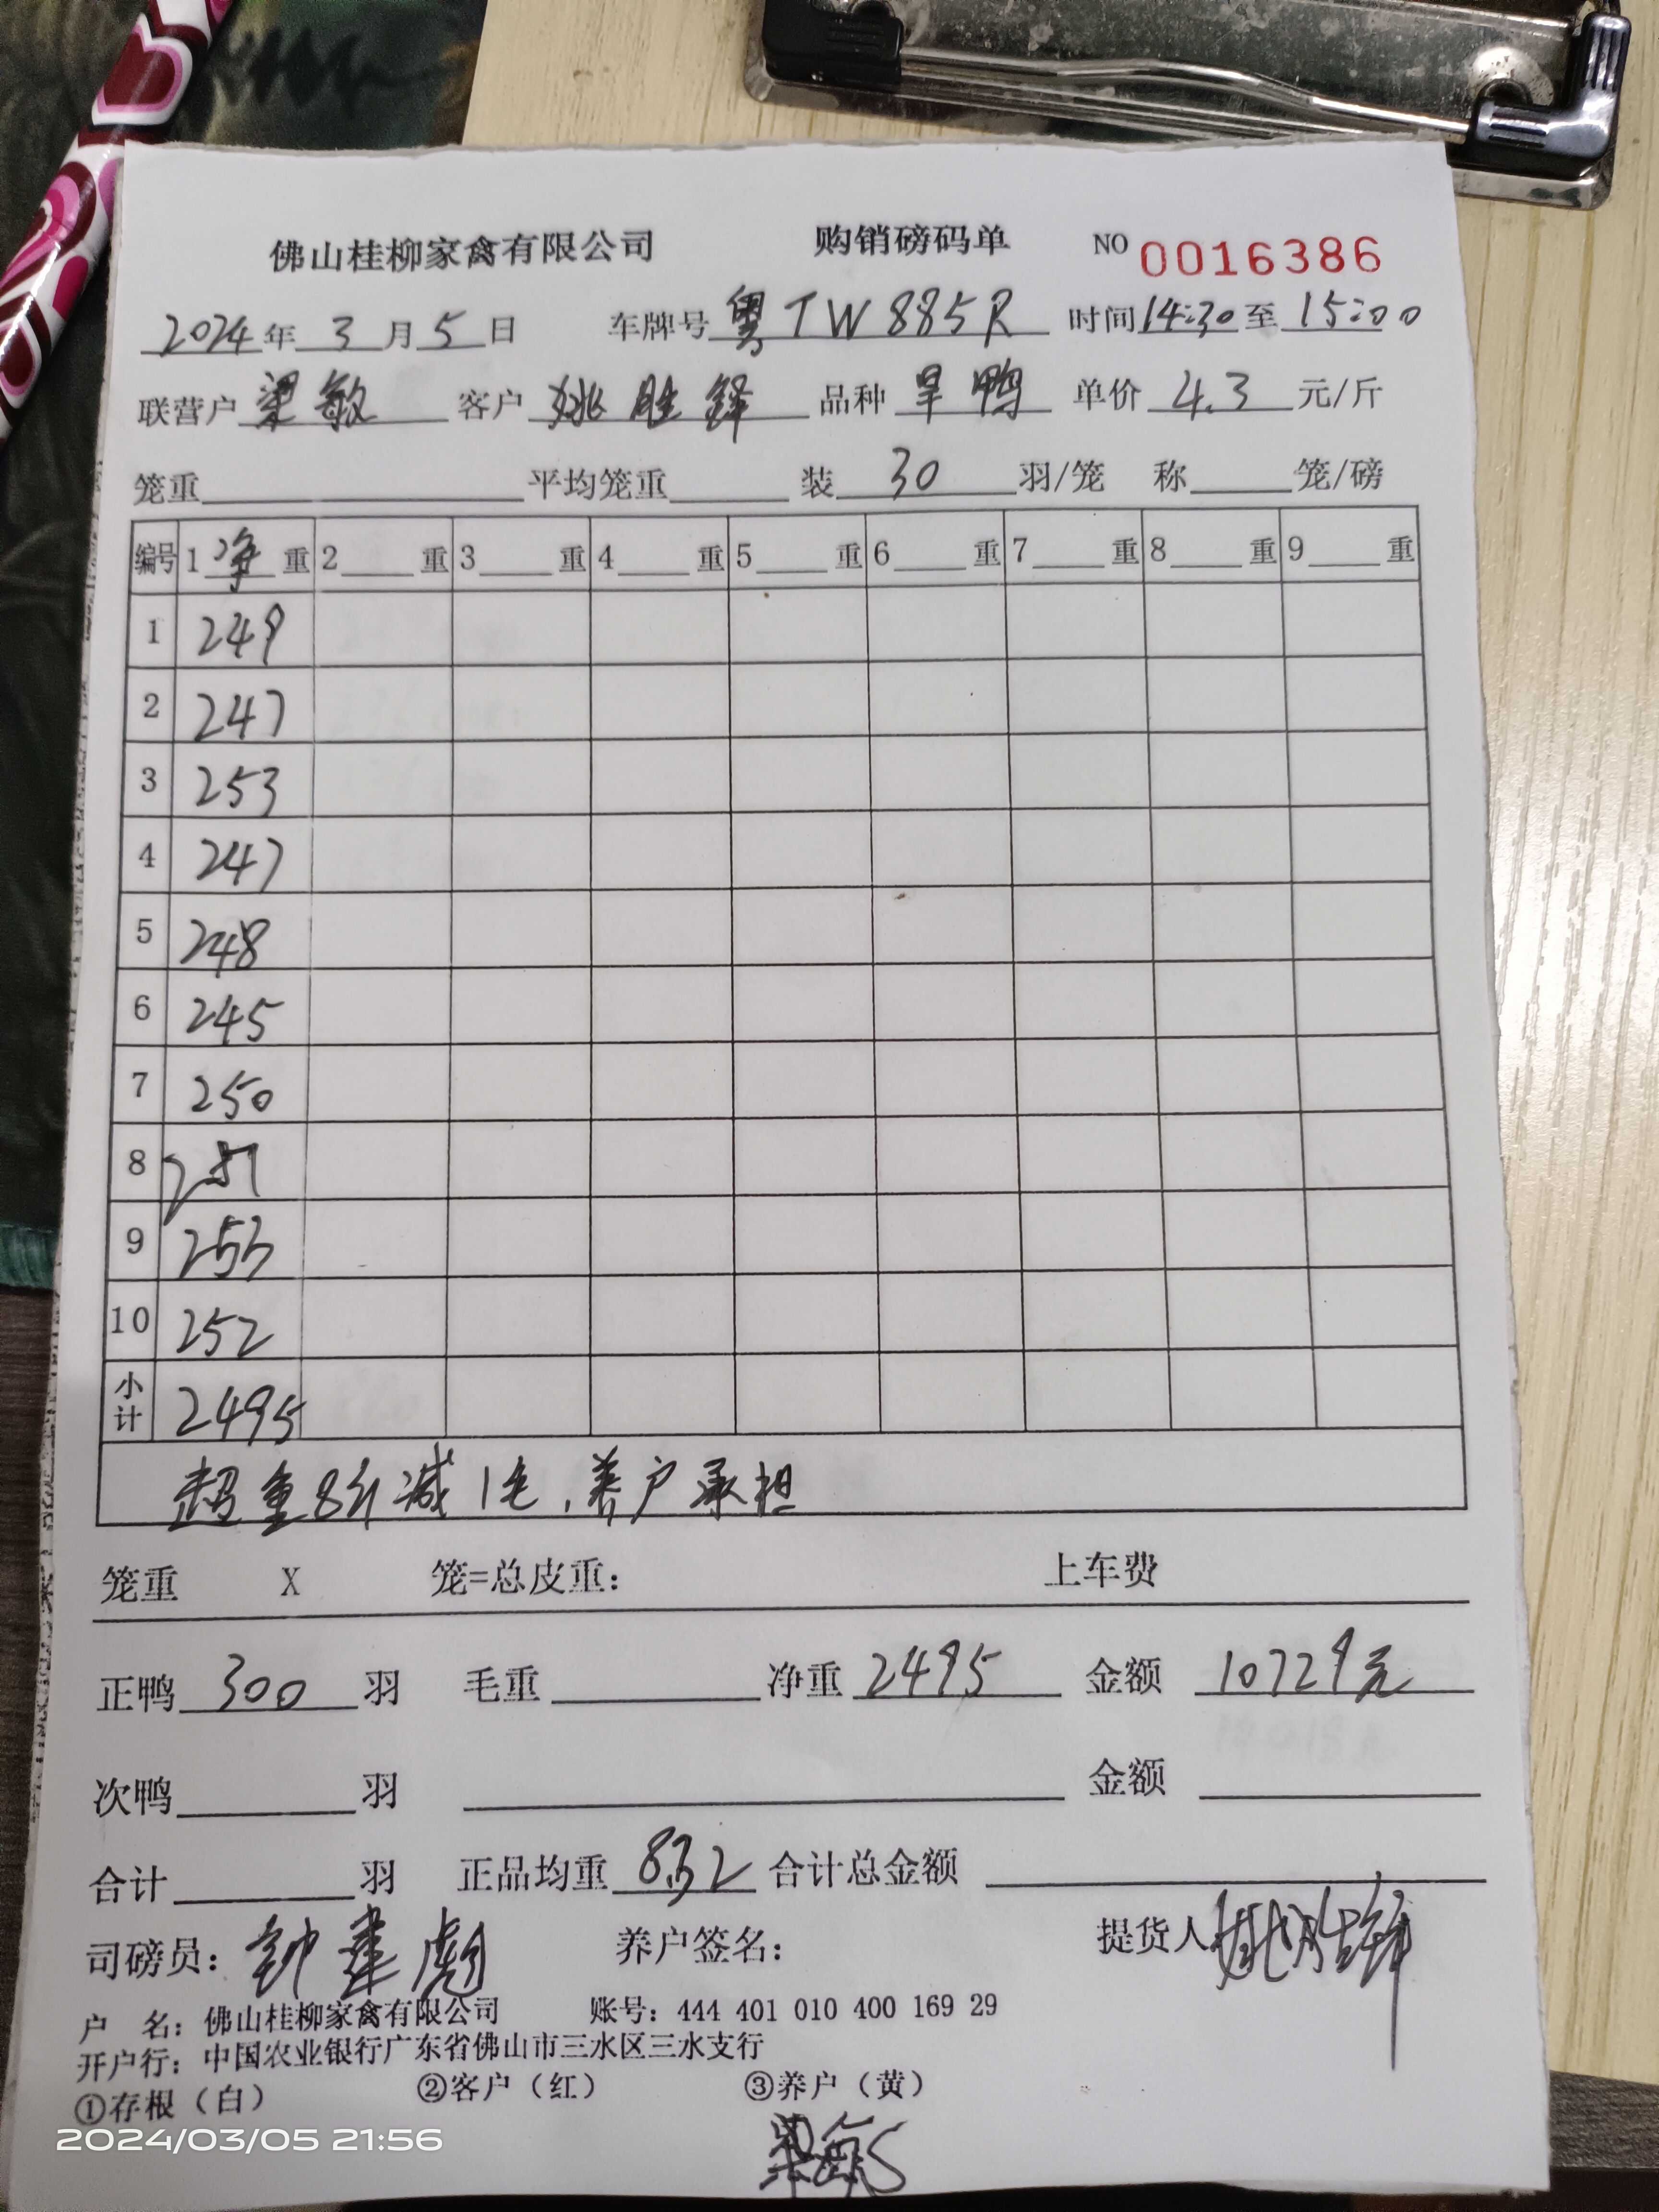 佛山桂柳家禽有限公司 购销磅码单 NO 0016386
2024年 3 月 5 日 车牌号 粤TW885R 时间 14:30 至 15:00
联营户 梁敏 客户 姚胜锋 品种 旱鸭 单价 4.3 元/斤
笼重 平均笼重 装 30 羽/笼 称 笼/磅
编号 1 净 重 2 重 3 重 4 重 5 重 6 重 7 重 8 重 9 重
1 249
2 247
3 253
4 247
5 248
6 245
7 250
8 251
9 253
10 252
小计 2495
超重8斤减1毛,养户承担
笼重 X 笼=总皮重: 上车费
正鸭 300 羽 毛重 净重 2495 金额 10729元
次鸭 羽 金额
合计 羽 正品均重 8.32 合计总金额
司磅员: 钟建彪 养户签名: 提货人 姚胜锋
户 名: 佛山桂柳家禽有限公司 账号: 444 401 010 400 169 29
开户行: 中国农业银行广东省佛山市三水区三水支行
①存根(白) ②客户(红) ③养户(黄)
梁敏
2024/03/05 21:56